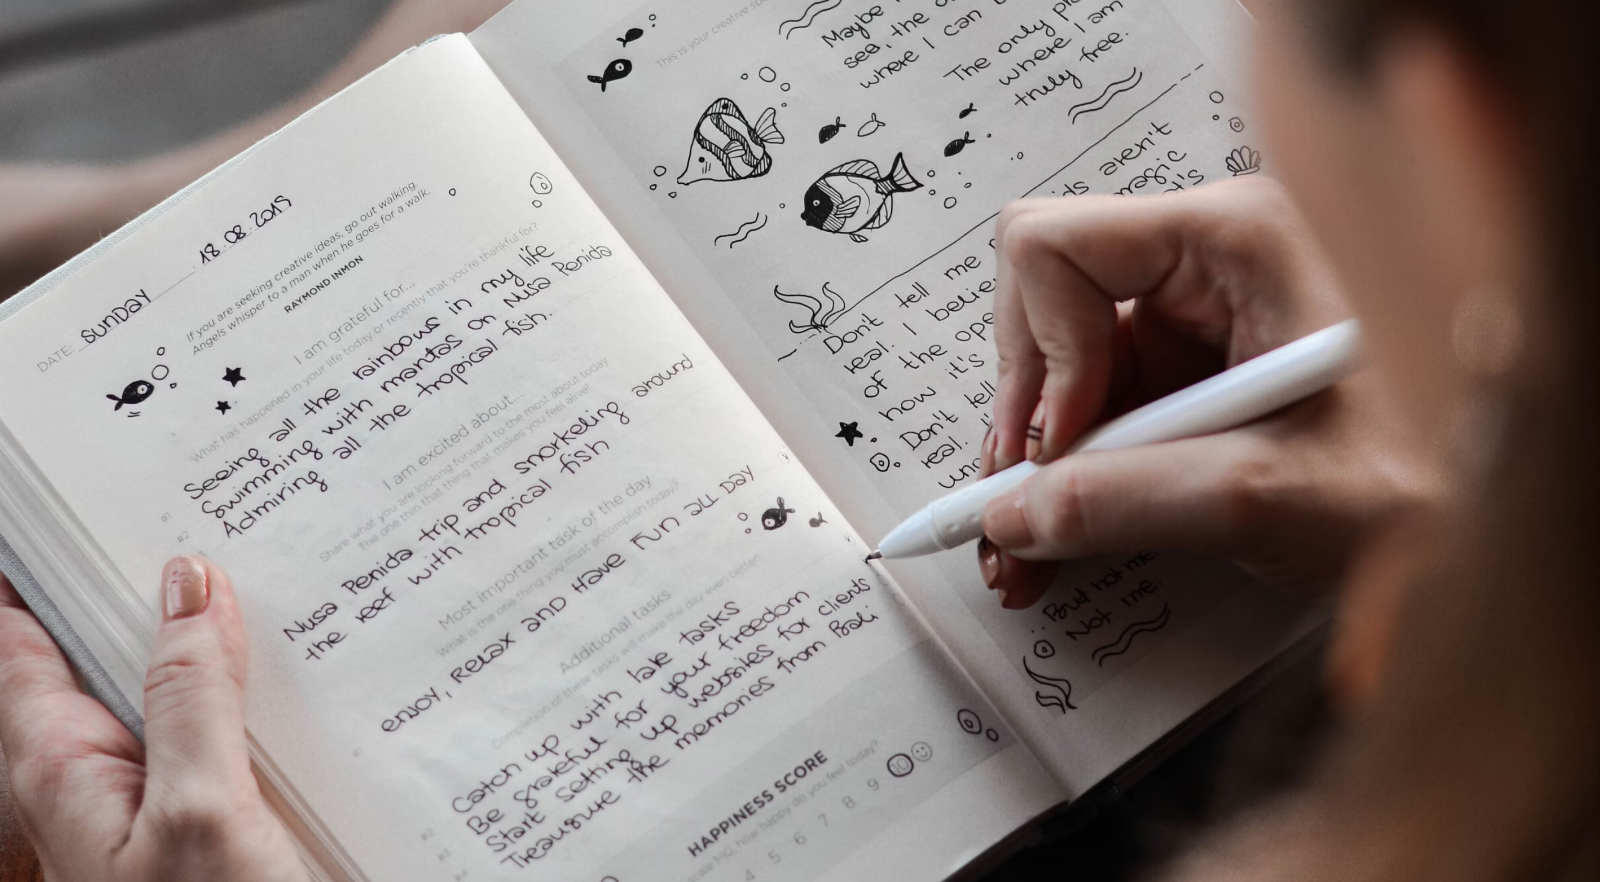 DATE: SUNDAY 18.08.2019
If you are seeking creative ideas, go out walking.
Angels whisper to a man when he goes for a walk.
RAYMOND INMON
I am grateful for...
What has happened in your life today or recently that you're thankful for?
#1 Seeing all the rainbows in my life
#2 Swimming with mantas on Nusa Penida
Admiring all the tropical fish.
I am excited about...
Share what you are looking forward to the most about today
The one thing that makes you feel alive!
Nusa Penida trip and snorkeling around
the reef with tropical fish
Most important task of the day
What is the one thing you must accomplish today?
ENJOY, RELAX AND HAVE FUN ALL DAY
Additional tasks
Completion of these tasks will make the day even better
#1 Catch up with late tasks
#2 Be grateful for your freedom
#3 Start setting up websites for clients
#4 Treausure the memories from Bali
HAPPINESS SCORE
how happy do you feel today?
4 5 6 7 8 9 10
This is your creative
Maybe
sea, the
where I can
The only
where I am
truly free.
aren't
magic
Don't tell me
real. I
of the
how it's
Don't tell
real.
But not me.
Not me.